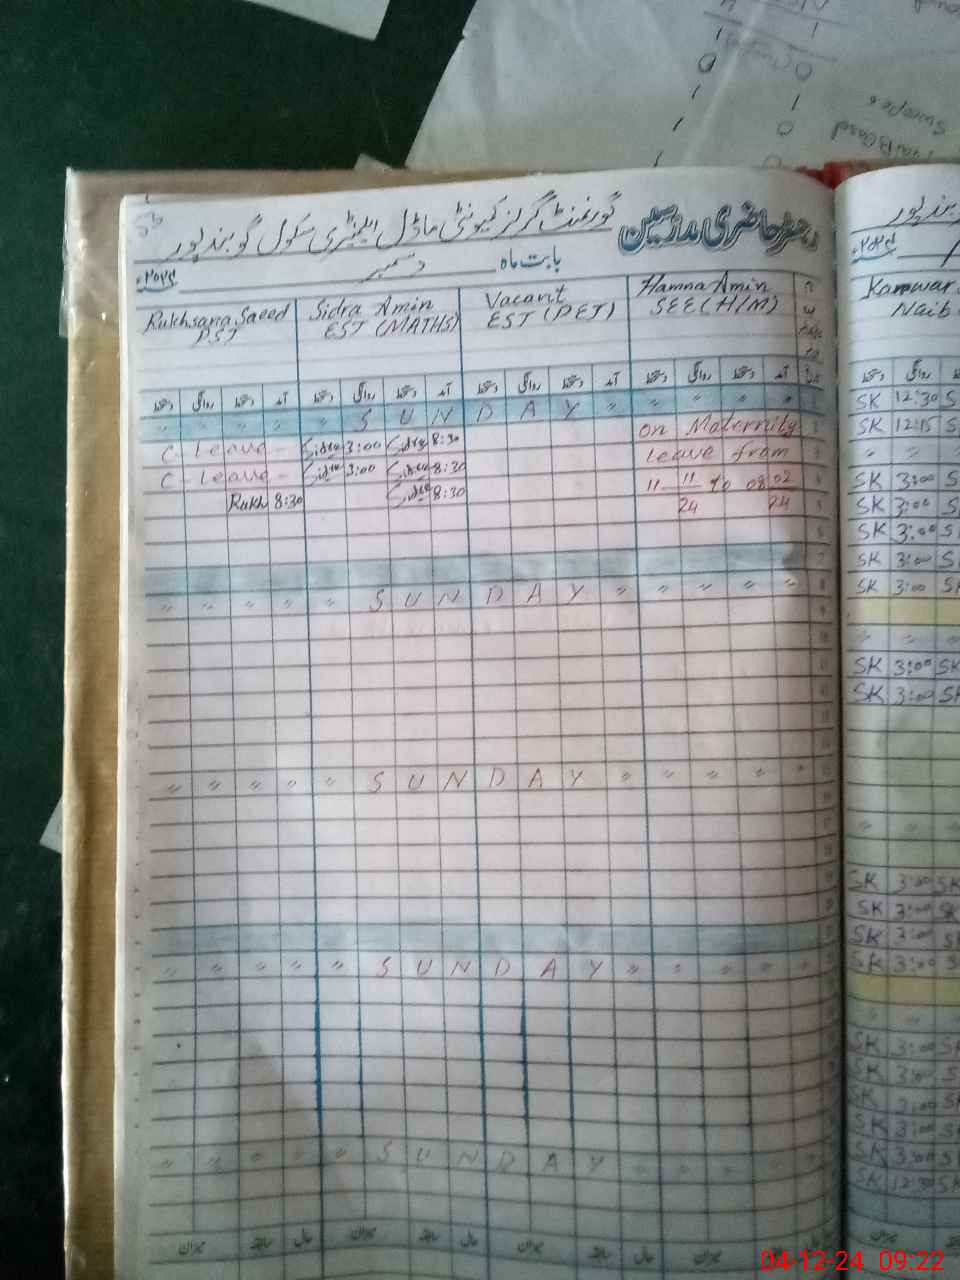 رجسٹر حاضری مدرسین گورنمنٹ گرلز کمیونٹی ماڈل ایلیمنٹری سکول گوبندپور
بابت ماہ دسمبر ۲۰۲۴ء
Hamna Amin
SEE (H/M)
Vacant
EST (PET)
Sidra Amin
EST (MATHS)
Rukhsana Saeed
PST
آمد دستخط روانگی دستخط آمد دستخط روانگی دستخط آمد دستخط روانگی دستخط آمد دستخط روانگی دستخط
" " " " " S U N D A Y " " " " "
C - Leave - Sidra 3:00 Sidra 8:30 on Maternity
C - Leave - Sidra 3:00 Sidra 8:30 leave from
Rukh 8:30 Sidra 8:30 11 11 to 08 02
24 24
" " " " " S U N D A Y " " " " "
" " " " " S U N D A Y " " " " "
" " " " " S U N D A Y " " " " "
" " " " " S U N D A Y " " " "
میزان سابقہ حال میزان سابقہ حال میزان سابقہ حال میزان
۲۰۲۴ء
Kanwar
Naib
دستخط روانگی
SK 12:30 S
SK 12:15 S
" "
SK 3:00 S
SK 3:00 S
SK 3:00 S
SK 3:00 S
SK 3:00 S
" "
SK 3:00 SK
SK 3:00 SK
" "
SK 3:00 SK
SK 3:00 SK
SK 3:00 S
SK 3:00 S
" "
SK 3:00 S
SK 3:00 S
SK 3:00 S
SK 3:00 S
SK 3:00 S
SK 12:30 SK
04-12-24 09:22